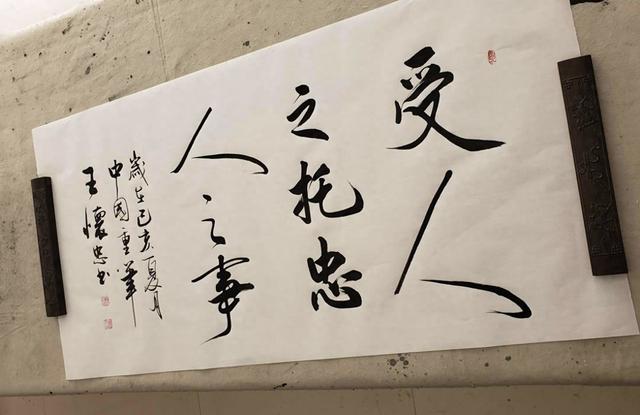 受人
之托忠
人之事
歲在己亥夏月
中国重筆
王懷忠书